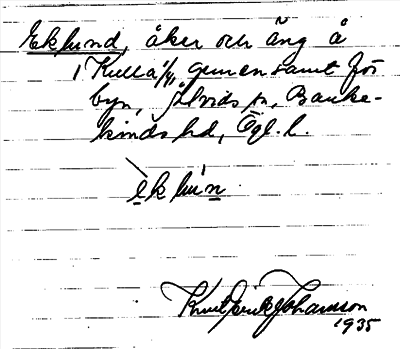 Eklund, åker och äng å
1 Kulla 1/4, gemensamt för
byn, Ö. Ryds sn, Banke-
kinds hd, Ögl. l.
eklun
Knut Erik Johansson
1935